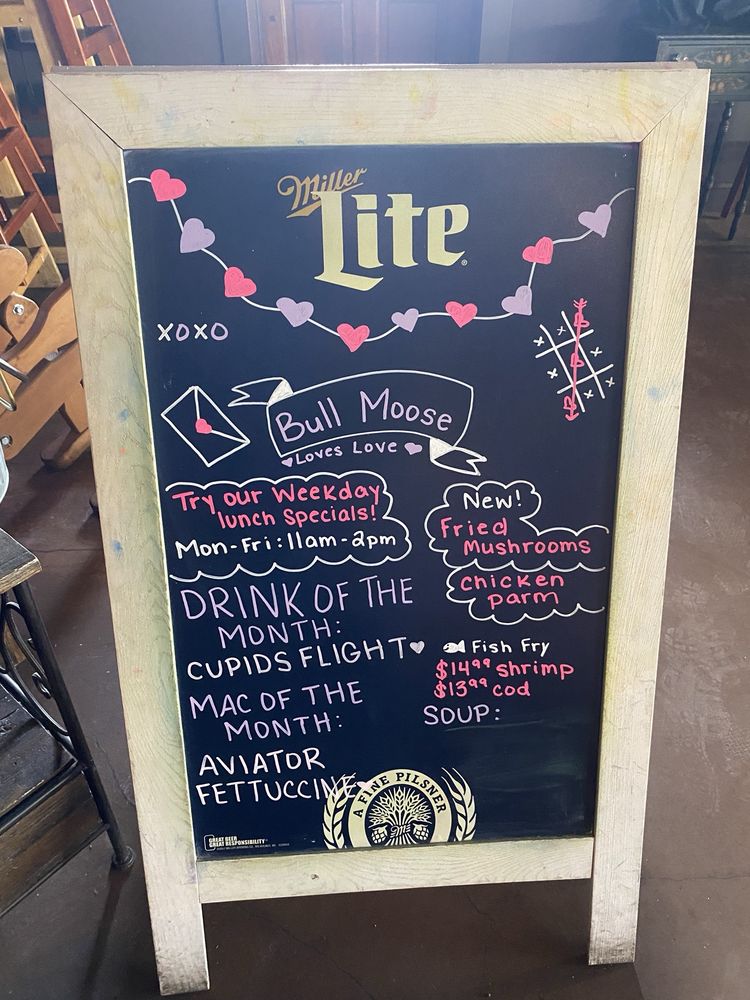 Miller
Lite
XOXO
Bull Moose
Loves Love
Try our Weekday
lunch Specials!
Mon-Fri: 11am-2pm
New!
Fried
Mushrooms
Chicken
parm
DRINK OF THE
MONTH:
CUPIDS FLIGHT
Fish Fry
$14.99 shrimp
$13.99 cod
MAC OF THE
MONTH:
SOUP:
AVIATOR
FETTUCCINE
A FINE PILSNER
GREAT BEER
GREAT RESPONSIBILITY